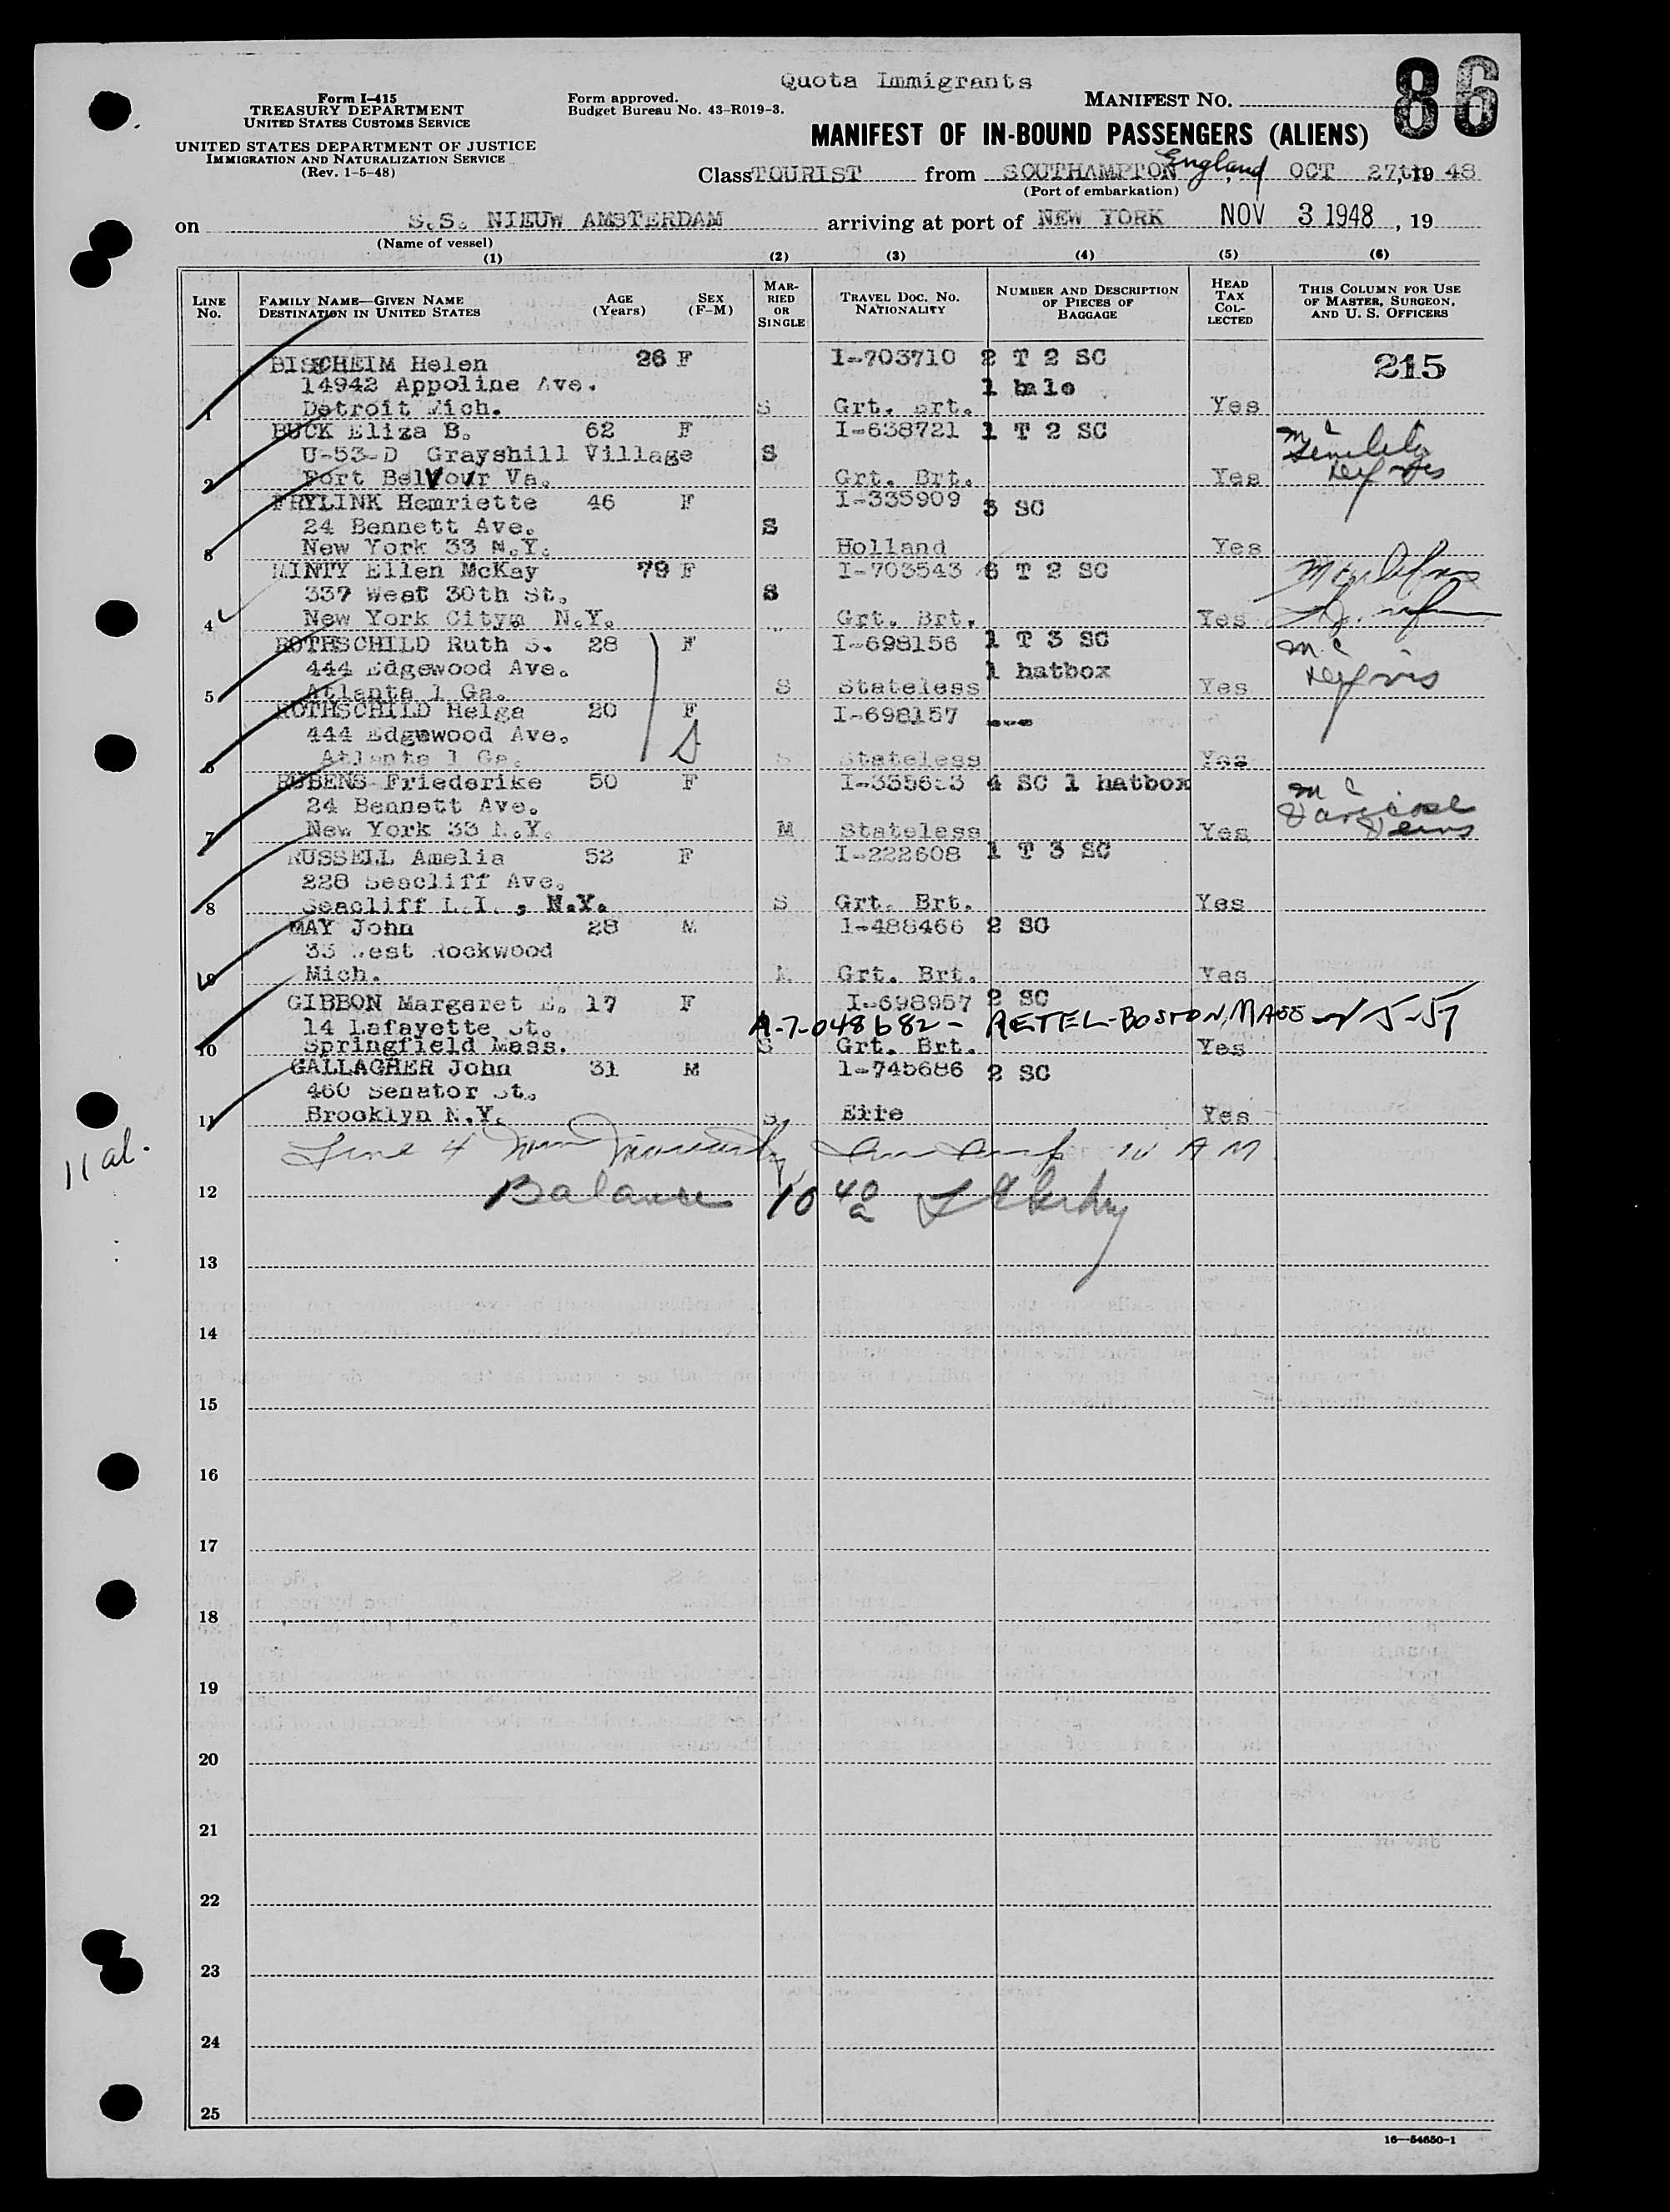 Quota Immigrants
86
Form I-415
TREASURY DEPARTMENT
UNITED STATES CUSTOMS SERVICE
UNITED STATES DEPARTMENT OF JUSTICE
IMMIGRATION AND NATURALIZATION SERVICE
(Rev. 1-5-48)
Form approved.
Budget Bureau No. 43-R019-3.
MANIFEST NO.
MANIFEST OF IN-BOUND PASSENGERS (ALIENS)
Class TOURIST from SOUTHAMPTON England, OCT 27th, 19 48
(Port of embarkation)
on S.S. NIEUW AMSTERDAM arriving at port of NEW YORK NOV 3 1948, 19
(Name of vessel)
(1) (2) (3) (4) (5) (6)
LINE No. FAMILY NAME—GIVEN NAME DESTINATION IN UNITED STATES AGE (Years) SEX (F-M) MARRIED OR SINGLE TRAVEL DOC. NO. NATIONALITY NUMBER AND DESCRIPTION OF PIECES OF BAGGAGE HEAD TAX COLLECTED THIS COLUMN FOR USE OF MASTER, SURGEON, AND U. S. OFFICERS
BISCHEIM Helen 26 F I-703710 2 T 2 SC 215
14942 Appoline Ave. 1 bale
1 Detroit Mich. S Grt. Brt. Yes
BUCK Eliza B. 62 F I-638721 1 T 2 SC
U-53-D Grayshill Village S
2 Fort Belvour Va. Grt. Brt. Yes
FRYLINK Hemriette 46 F I-335909 3 SC
24 Bennett Ave. S
3 New York 33 N.Y. Holland Yes
MINTY Ellen McKay 79 F I-703543 6 T 2 SC
337 West 30th St. S
4 New York City N.Y. Grt. Brt. Yes
ROTHSCHILD Ruth S. 28 F I-698156 1 T 3 SC
444 Edgewood Ave. 1 hatbox
5 Atlanta 1 Ga. S Stateless Yes
ROTHSCHILD Helga 20 F I-698157 ---
444 Edgwwood Ave.
6 Atlanta 1 Ga. S Stateless Yes
RUBENS Friederike 50 F 4 SC 1 hatbox
24 Bennett Ave.
7 New York 33 N.Y. M Stateless Yes
RUSSELL Amelia 52 F I-222608 1 T 3 SC
228 Seacliff Ave.
8 Seacliff L.I. , N.Y. S Grt. Brt. Yes
MAY John 28 M 1-488466 2 SC
33 West Rockwood
9 Mich. Grt. Brt. Yes
GIBBON Margaret E. 17 F I-698957 2 SC
14 Lafayette St. A-7-048682- BOSTON, MASS
10 Springfield Mass. S Grt. Brt. Yes
GALLAGHER John 31 M 1-745686 2 SC
460 Senator St.
11 Brooklyn N.Y. S Eire Yes
11 al.
Line 4 10 A M
12 Balance 10 40 a
13
14
15
16
17
18
19
20
21
22
23
24
25
16—54650-1